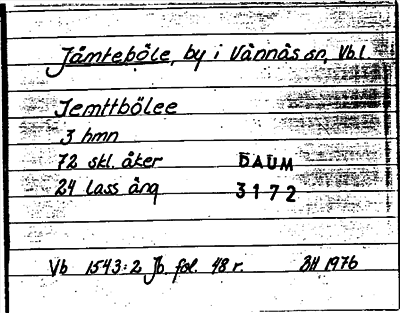 Jämteböle, by i Vännäs sn, Vb.l.
Jemttbölee
3 hmn
72 skl. åker DAUM
24 lass äng 3172
Vb 1543:2 Jb. fol. 48 r. BH 1976